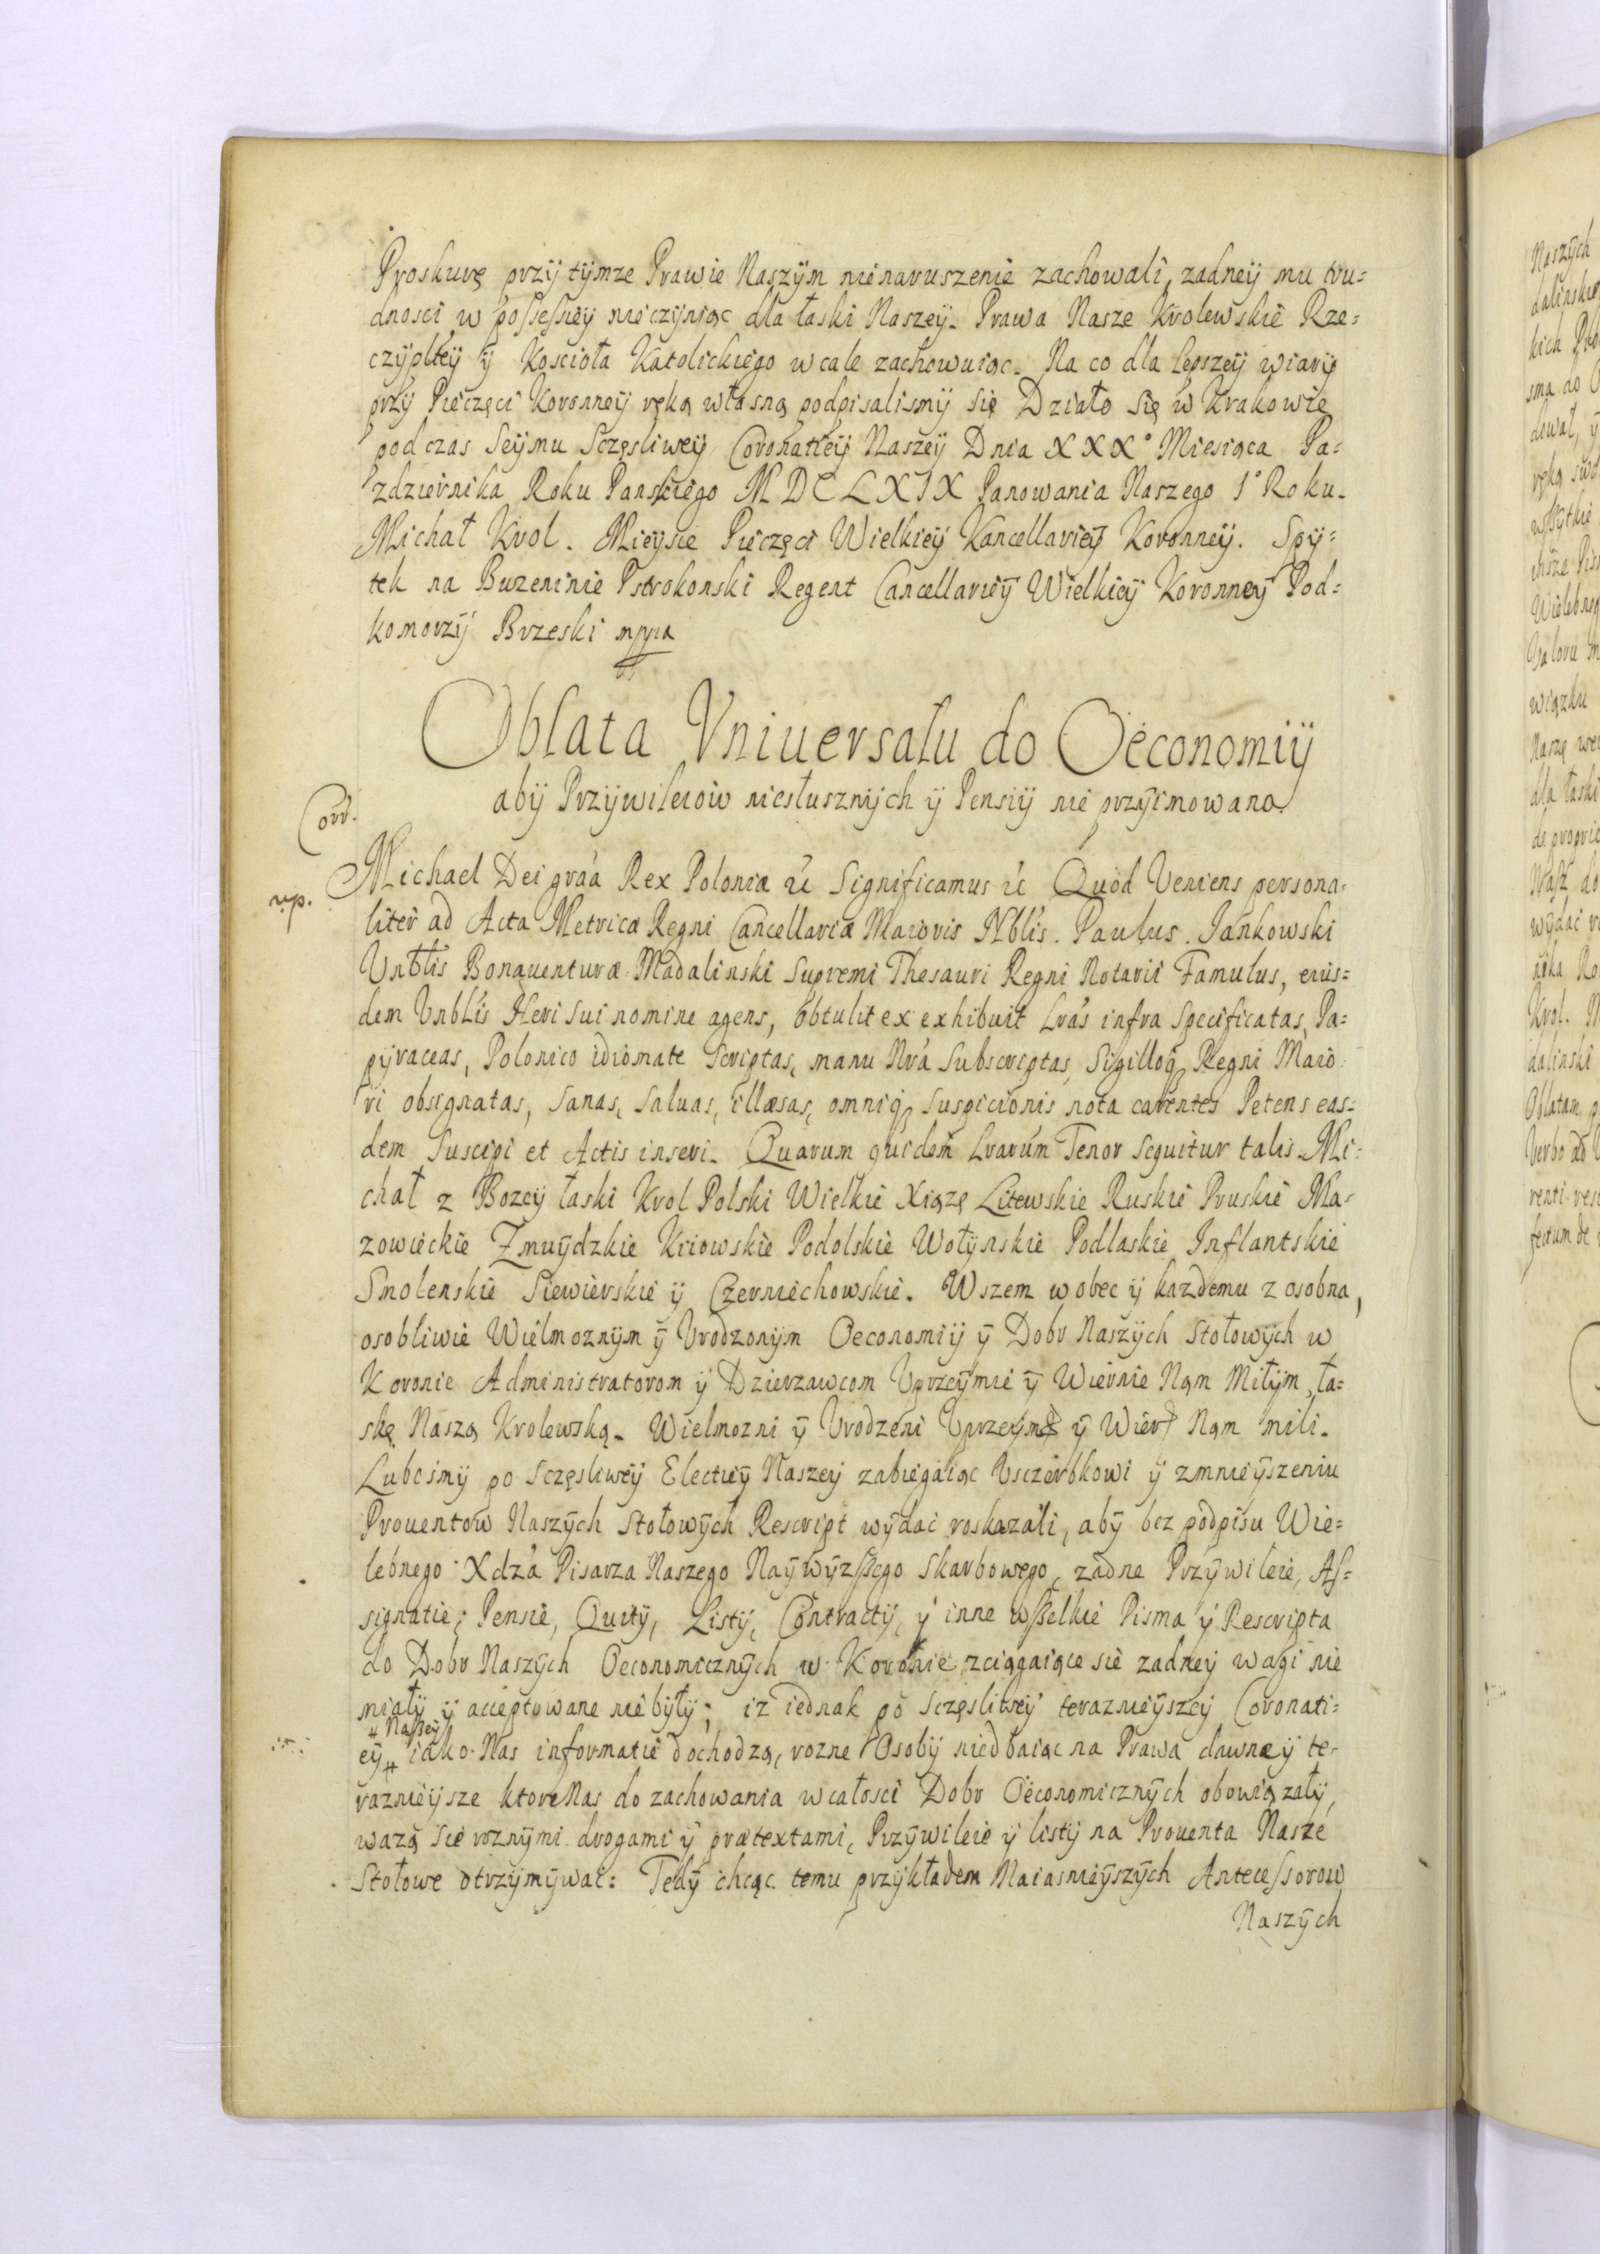 Proskurę przÿ tÿmze Prawie Naszÿm nienaruszenie zachowali, zadneÿ mu tru=
dnosci w possessieÿ nieczÿniąc dla łaski Naszeÿ. Prawa Nasze Krolewskie Rze=
czÿpltéÿ ÿ Kosciołа Katolickiego wcale zachowuiąc. Na co dla lepszeÿ wiarÿ
przÿ Pieczęci Koronneÿ ręką własną podpisalismÿ się Działo się w Krakowie
podczas Seÿmu Sczęsliweÿ Coronatieÿ Naszeÿ Dnia XXX° Miesiąca Pa=
zdziernika Roku Panskiego MDCLXIX Panowania Naszego 1° Roku.
Michał Krol. Mieÿsce Pieczęci Wielkieÿ Kancellarieÿ Koronneÿ. Spÿ=
tek na Buzeninie Pstrokonski Regent Cancellarieÿ Wielkieÿ Koronneÿ Pod=
komorzÿ Brzeski mppia
Oblata Vniuersału do Oeconomiÿ
abÿ Przÿwileiow niesłusznÿch ÿ Pensiÿ nie przÿimowano
Corr.
Michael Dei grá́a Rex Poloniæ &c Significamus &c Quod Veniens persona=
rp.
liter ad Acta Metricæ Regni Cancellariæ Maioris Nblis. Paulus. Jankowski
Vnblis Bonauenturæ Madalinski Supremi Thesauri Regni Notarii Famulus, eius=
dem Vnblis Heri Sui nomine agens, obtulit ex exhibuit Lrás infra Specificatas, Pa=
pÿraceas, Polonico idiomate Scriptas, manu Nrá Subscriptas, Sigilloq Regni Maio=
ri obsignatas, Sanas, Saluas, illæsas, omniq Suspicionis nota carentes Petens eas=
dem Suscipi et Actis inseri. Quarum quidem Lrarúm Tenor Sequitur talis Mi=
chał z Bozeÿ łaski Krol Polski Wielkie Xiązę Litewskie Ruskie Pruskie Ma=
zowieckie Zmuÿdzkie Kiiowskie Podolskie Wołÿnskie Podlaskie Inflantskie
Smolenskie Siewierskie ÿ Czerniechowskie. Wszem wobec ÿ kazdemu z osobna,
osobliwie Wielmoznÿm ÿ Vrodzonÿm Oeconomiÿ ÿ Dobr Naszÿch Stołowÿch w
Koronie Administratorom ÿ Dzierzawcom Vprzeÿmie ÿ Wiernie Nąm Miłÿm ła=
skę Naszą Krolewską. Wielmozni ÿ Vrodzeni Vprzeÿme ÿ Wier Nąm mili.
Lubosmÿ po Sczęsliweÿ Electieÿ Naszeÿ zabiegaiąc Vsczerbkowi ÿ zmnieÿszeniu
Prouentow Naszÿch Stołowÿch Rescript wÿdac roskazali, abÿ bez podpisu Wie=
lebnego Xdzá Pisarza Naszego Naÿwÿzszego Skarbowego, zadne Przÿwileie, As=
signatie, Pensie, Quitÿ, Listÿ, Contractÿ, ÿ inne wszelkie Pisma ÿ Rescripta
do Dobr Naszÿch Oeconomicznÿch w Koronie zciągaiące sie zadneÿ wagi nie
miałÿ ÿ acceptowane nie bÿłÿ; iz iednak po Sczęsliweÿ teraznieÿszeÿ Coronati=
# Naszeÿ
eÿ # iako Nas informatie dochodzą, rozne Osobÿ niedbaiąc na Prawa dawne ÿ te=
raznieÿsze ktore Nas do zachowania wcałosci Dobr Oeconomicznÿch obowiązałÿ,
wazą się roznÿmi drogami ÿ prætextami, Przÿwileie ÿ listÿ na Prouenta Nasze
Stołowe otrzÿmÿwac: Tedÿ chcąc temu przÿkładem Naiasnieÿszÿch Antecessorow
Naszÿch